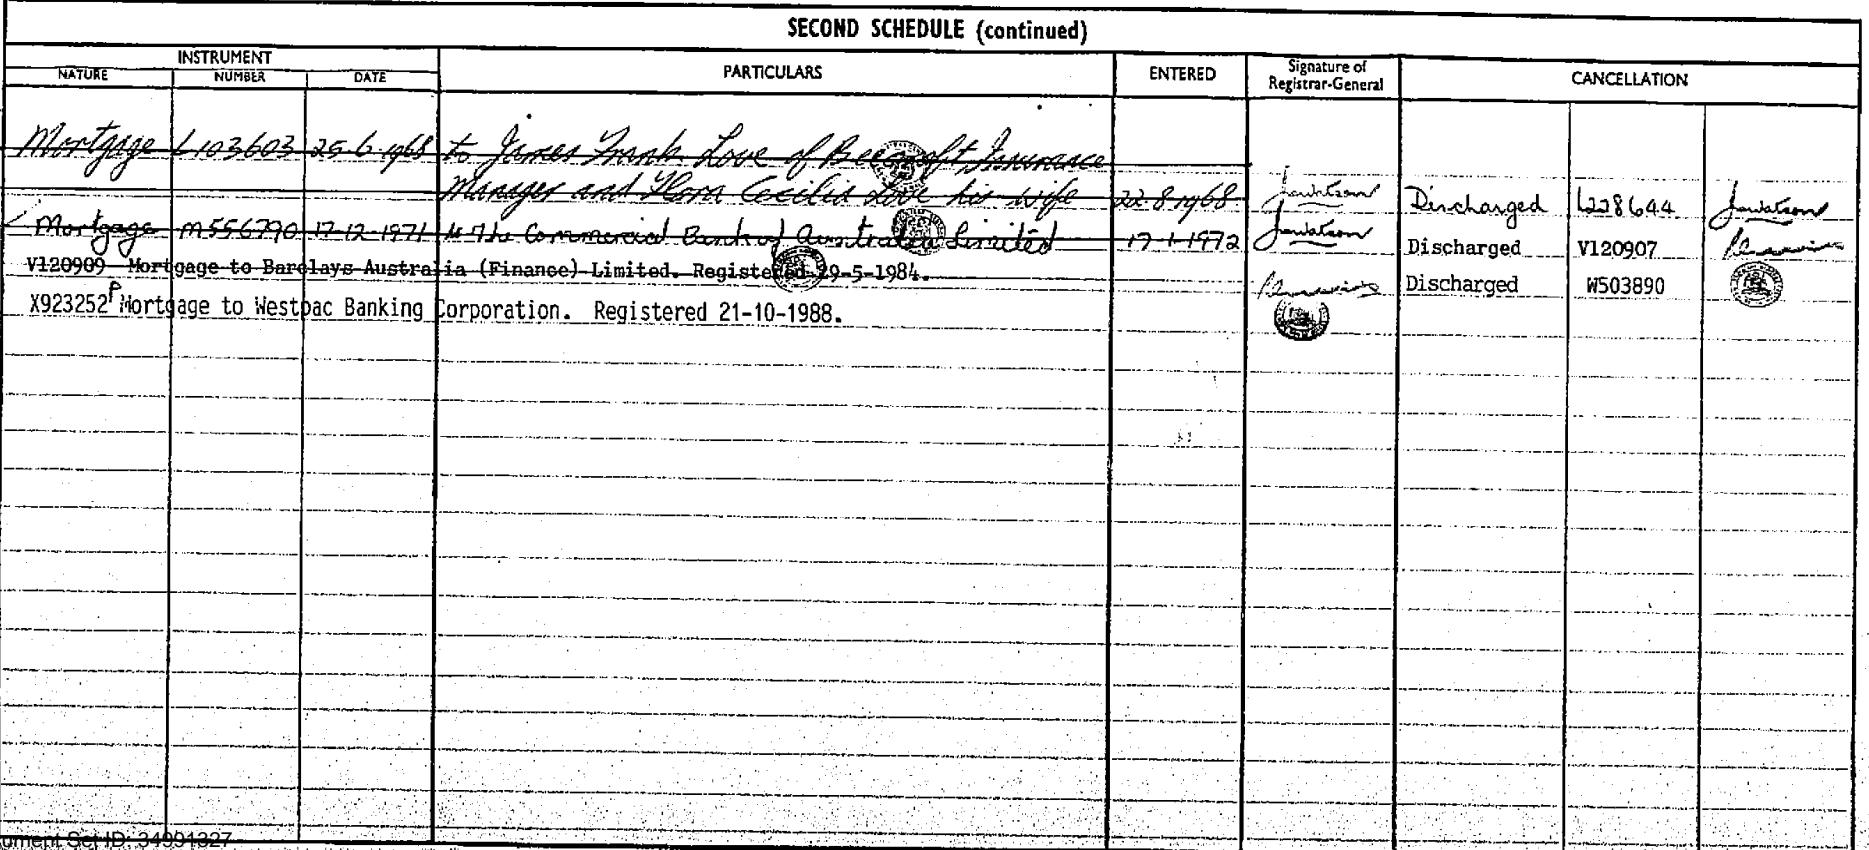 SECOND SCHEDULE (continued)
INSTRUMENT
NATURE NUMBER DATE PARTICULARS ENTERED Signature of Registrar-General CANCELLATION
Mortgage L103603 25-6-1968 to James Frank Love of Beecroft Insurance
Manager and Flora Cecilia Love his wife 22-8-1968 Jawatson Discharged L228644 Jawatson
Mortgage M556790 17-12-1971 to The Commercial Bank of Australia Limited 17-1-1972 Jawatson Discharged V120907
V120909 Mortgage to Barclays Australia (Finance) Limited. Registered 29-5-1984. Discharged W503890
X923252P Mortgage to Westpac Banking Corporation. Registered 21-10-1988.
ument Set ID: 34991327